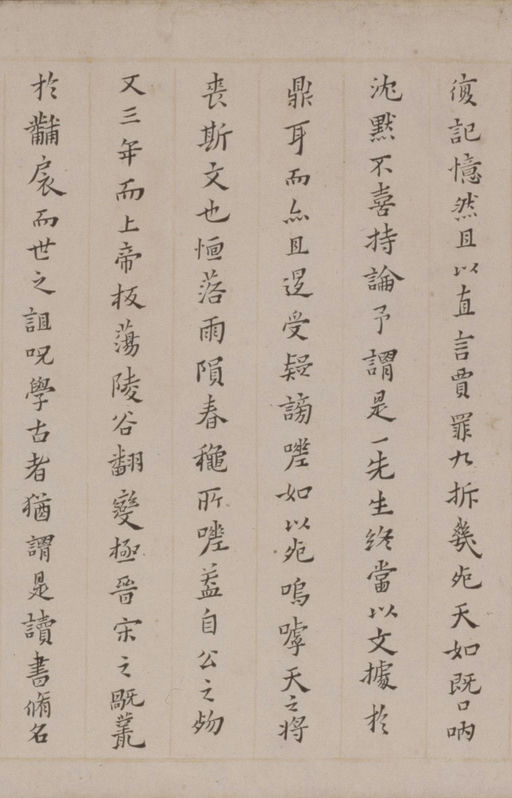 復記憶然且以直言賈罪九折幾死天如既口吶
沈默不喜持論予謂是一先生終當以文據於
鼎耳而亦且遝受疑謗嚜如以死嗚嘑天之將
喪斯文也恒落雨隕春穐所嚜葢自公之歾
又三年而上帝板蕩陵谷翻變極晉宋之
於黼扆而世之詛呪學古者猶謂是讀書脩名